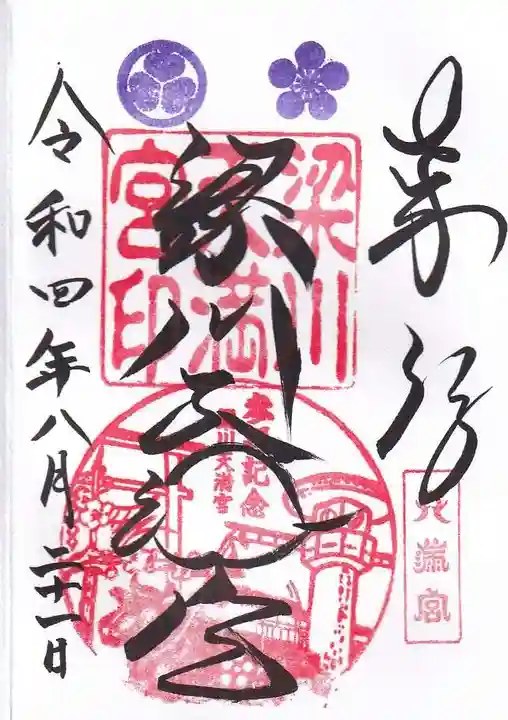 奉拝
梁川天満宮
令和四年八月二十一日
梁川
天満
宮印
記念
川天満宮
天満宮